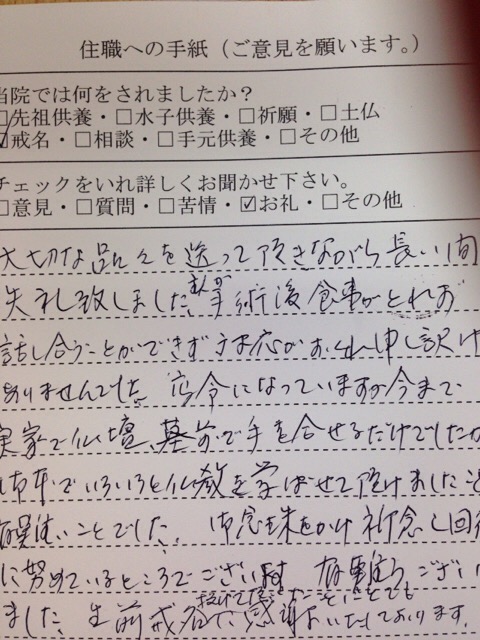 住職への手紙（ご意見を願います。）
当院では何をされましたか？
□先祖供養・□水子供養・□祈願・□土仏
☑戒名・□相談・□手元供養・□その他
チェックをいれ詳しくお聞かせ下さい。
□意見・□質問・□苦情・☑お礼・□その他
大切な品々を送って頂きながら長い間
失礼致しました。手術後食事がとれず
話し合うことができず対応がおくれ申し訳け
ありませんでした。高令になっていますが今まで
実家で仏壇、墓前で手を合せるだけでしたが
御本でいろいろと仏教を学ばせて頂けましたこと
有難いことでした。御念珠をかけ祈念し回復
に努めているところでございます 有難うござい
ました。生前戒名 感謝いたしております。